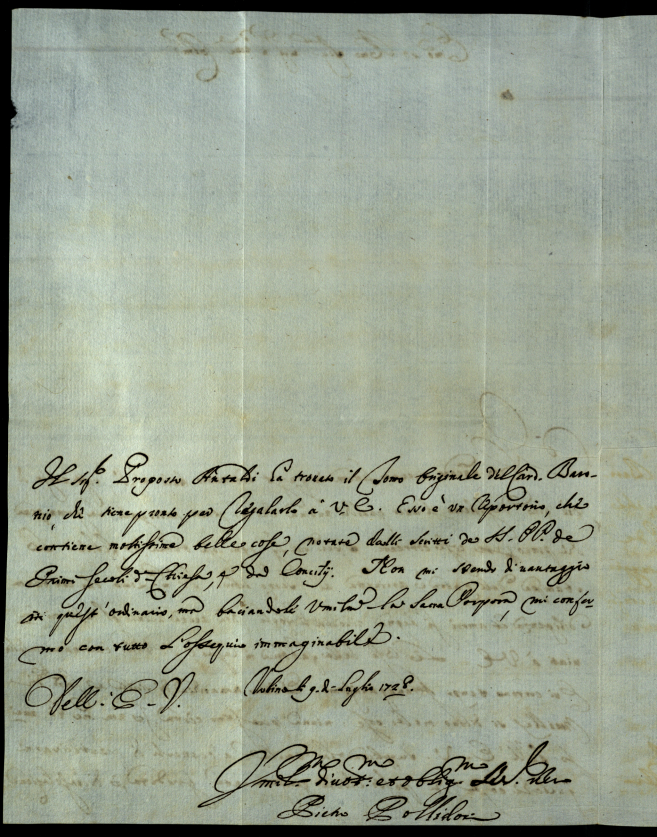 Il Sig.r Proposto Antaldi ha trovato il Tomo Originale del Card. Baro-
nio, che tiene pronto per regalarlo a V. E. Esso è un Repertorio, che
contiene moltissime belle cose, notate dalli scritti de SS. PP. de
Primi Secoli d. Chiesa, e da Concilj. Non mi stendo di vantaggio
in quest'ordinario, ma baciandole umilm.te la Sacra Porpora, mi confer-
mo con tutto l'ossequio immaginabile.
Dell: E. V. Urbino li 9. di Luglio 172
Umil.mo divot.mo et obblig.mo
Pietro Pollidori